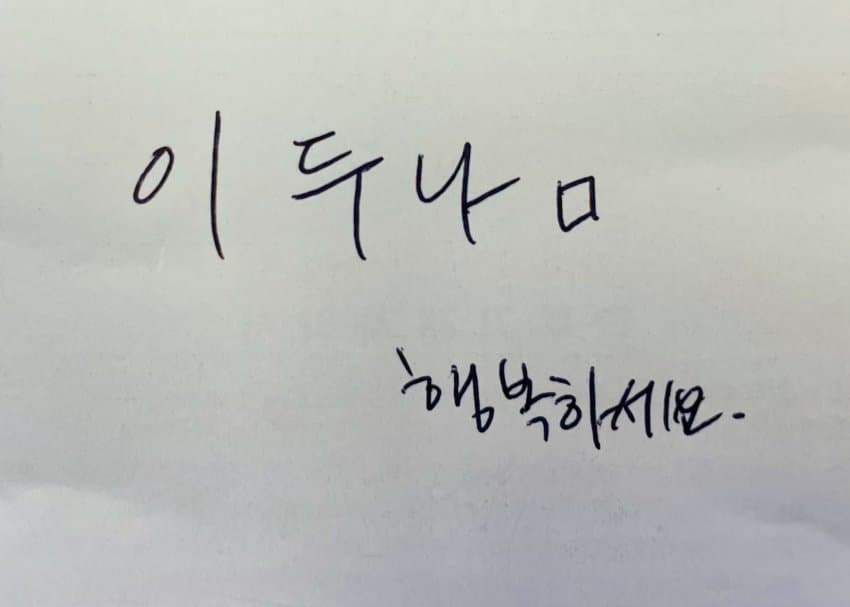 이두나ㅁ
행복하세요.